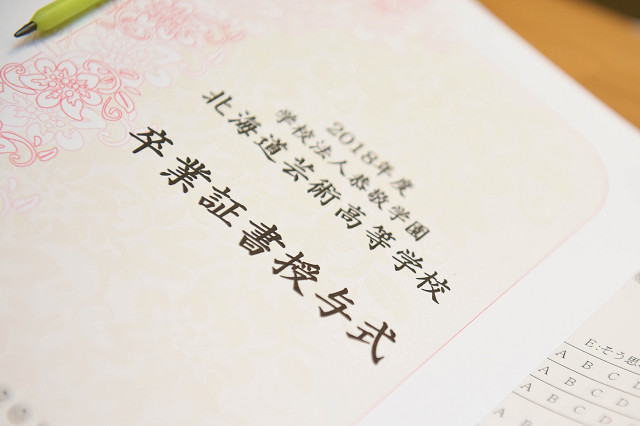 2018年度
学校法人恭敬学園
北海道芸術高等学校
卒業証書授与式
E:そう思
A B C D
A B C D
A B C D
A B C